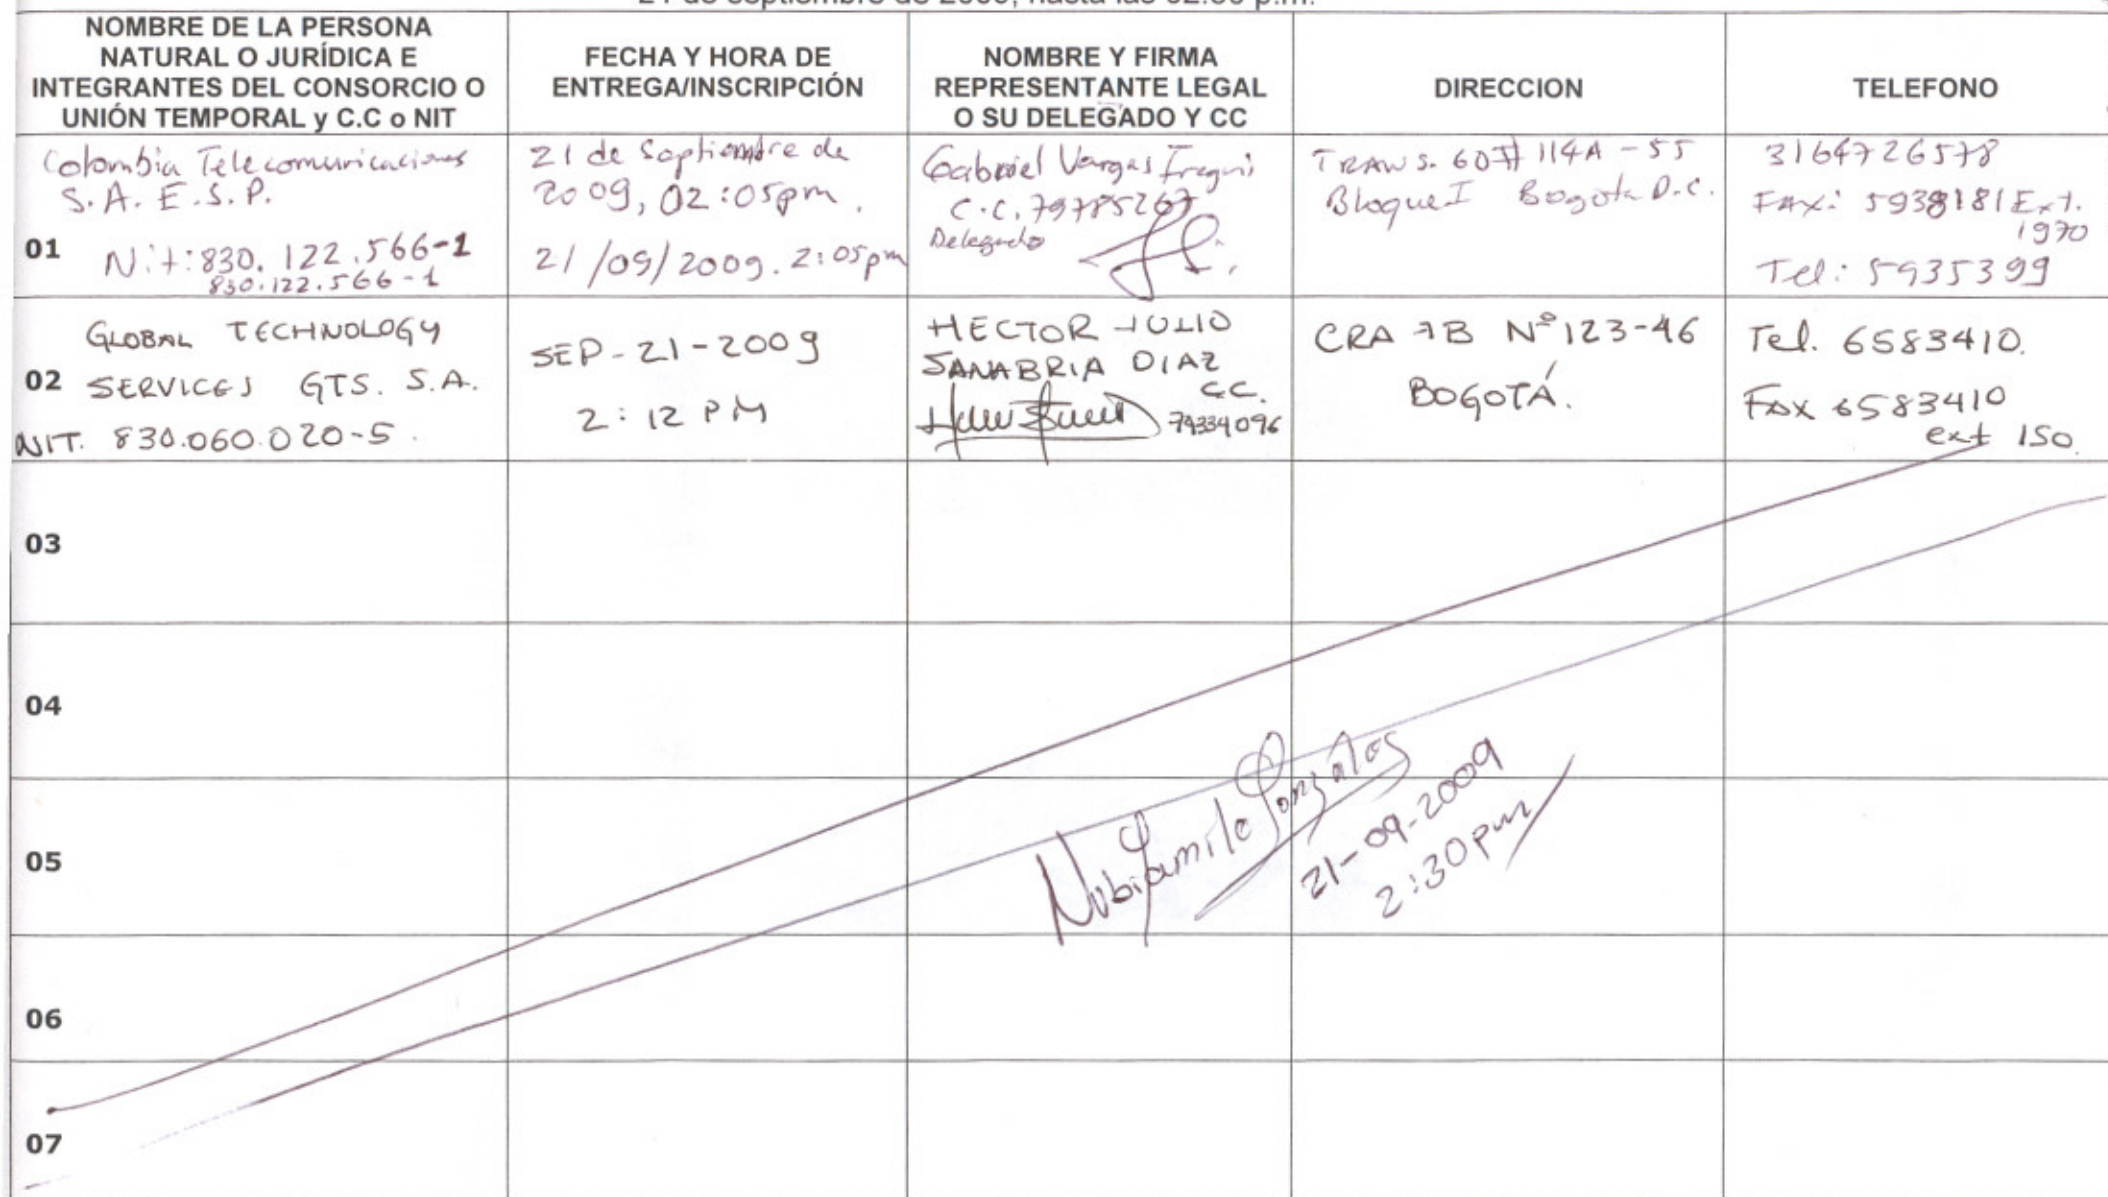 NOMBRE DE LA PERSONA
NATURAL O JURÍDICA E
INTEGRANTES DEL CONSORCIO O
UNIÓN TEMPORAL y C.C o NIT
FECHA Y HORA DE
ENTREGA/INSCRIPCIÓN
NOMBRE Y FIRMA
REPRESENTANTE LEGAL
O SU DELEGADO Y CC
DIRECCION
TELEFONO
01
Colombia Telecomunicaciones
S.A. E.S.P.
Nit: 830.122.566-1
830.122.566-1
21 de Septiembre de
2009, 02:05pm.
21/09/2009. 2:05pm
Gabriel Vargas
C.C. 79785267
Delegado
TRANS. 60 # 114A-55
Bloque I Bogota D.C.
3164726578
Fax: 5938181 Ext.
1970
Tel: 5935399
02
GLOBAL TECHNOLOGY
SERVICES GTS. S.A.
NIT. 830.060.020-5.
SEP-21-2009
2:12 PM
HECTOR JULIO
SANABRIA DIAZ
CC.
79334096
CRA 7B Nº 123-46
BOGOTÁ.
Tel. 6583410.
Fax 6583410
ext 150.
03
04
05
Nubia
21-09-2009
2:30pm
06
07